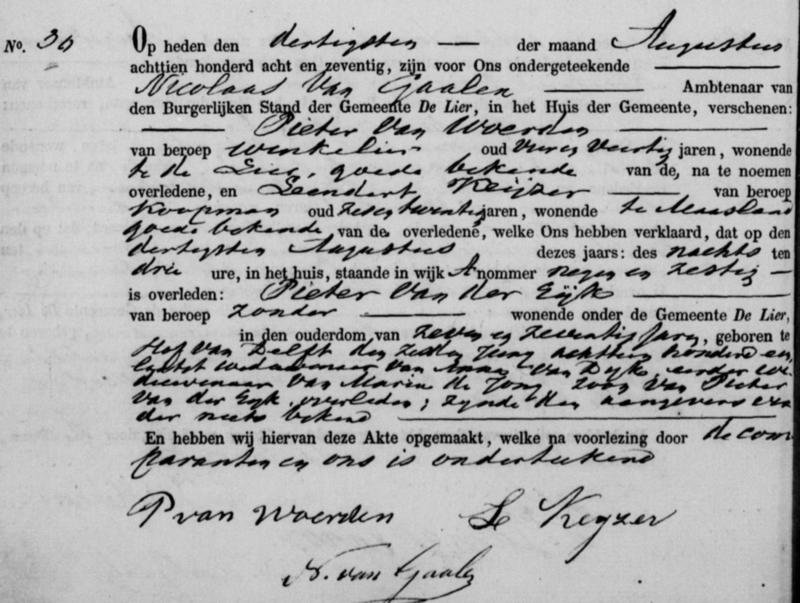 No. 30 Op heden den dertigsten — der maand Augustus
achttien honderd acht en zeventig, zijn voor Ons ondergeteekende
Nicolaas Van Gaalen Ambtenaar van
den Burgerlijken Stand der Gemeente De Lier, in het Huis der Gemeente, verschenen:
Pieter Van Woerden
van beroep winkelier oud vier en veertig jaren, wonende
te de Lier, goede bekende van de, na te noemen
overledene, en Leendert Keijzer van beroep
Koopman oud zes en twintig jaren, wonende te Maasland
goede bekende van de overledene, welke Ons hebben verklaard, dat op den
dertigsten Augustus dezes jaars: des nachts ten
drie ure, in het huis, staande in wijk A nommer negen en zestig —
is overleden: Pieter Van der Eijk
van beroep zonder wonende onder de Gemeente De Lier,
in den ouderdom van zeven en zeventig jaren, geboren te
Hof van Delft den achttien honderd een
laatst weduwenaar van Anna Van Dijk, eerder we-
duwenaar van Maria de Jong, zoon van Pieter
van der Eijk, overleden; zijnde den aangevers ver
der niets bekend
En hebben wij hiervan deze Akte opgemaakt, welke na voorlezing door de com
paranten en ons is onderteekend
P van Woerden Le Keyzer
N. van Gaalen